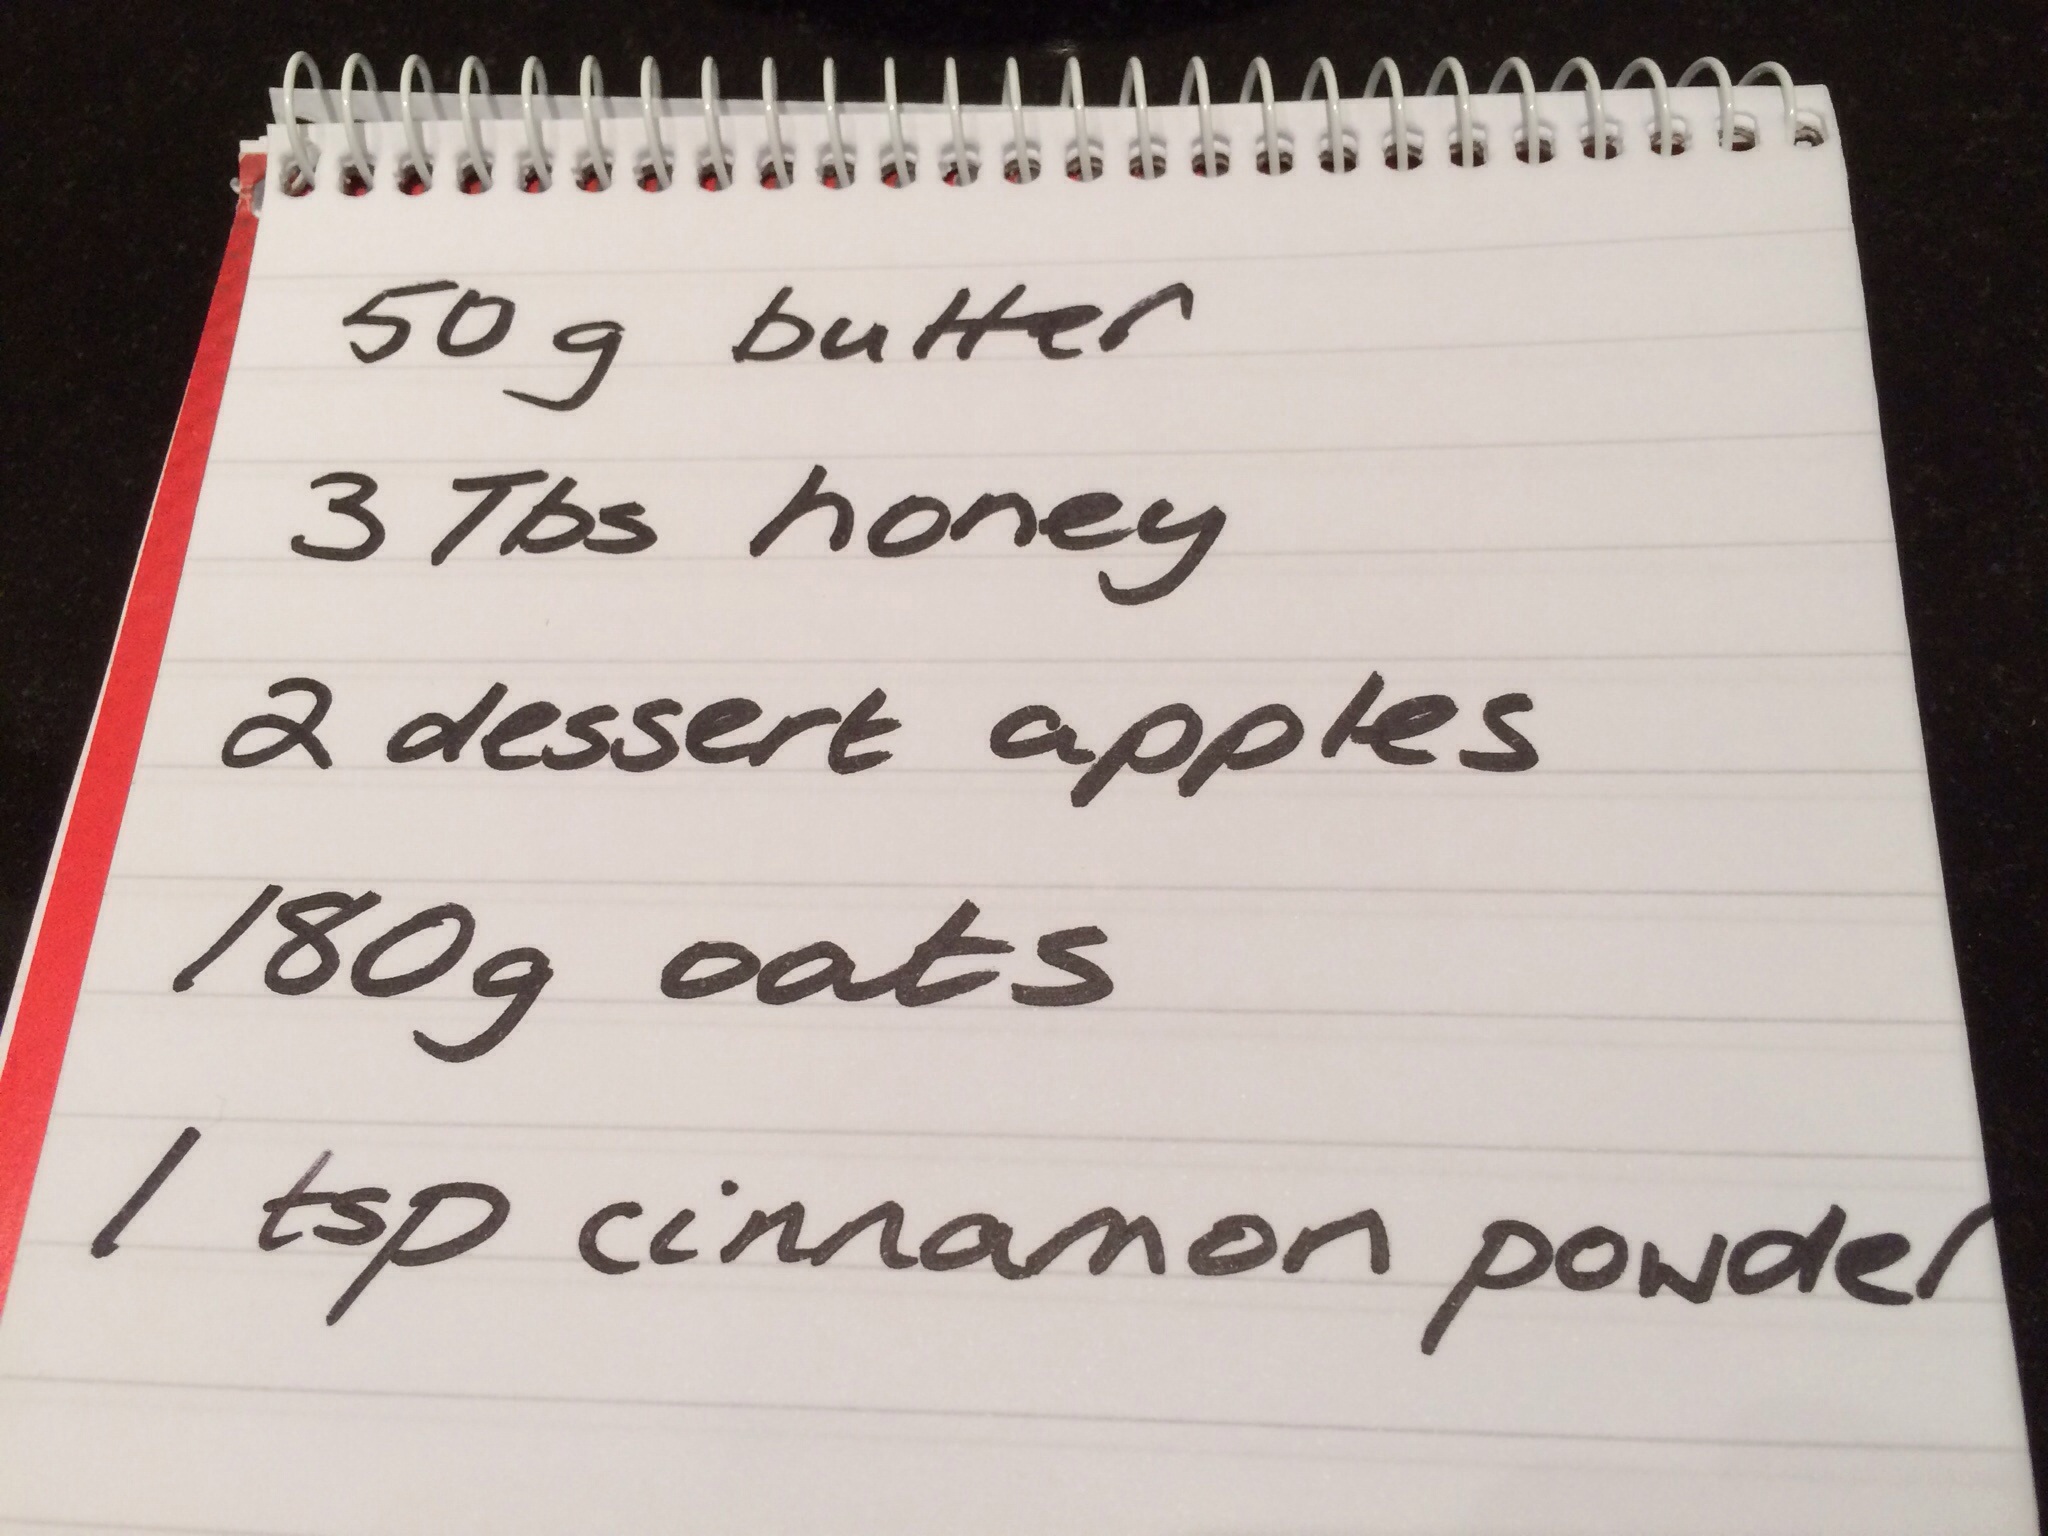 50g butter
3 Tbs honey
2 dessert apples
180g oats
1 tsp cinnamon powder